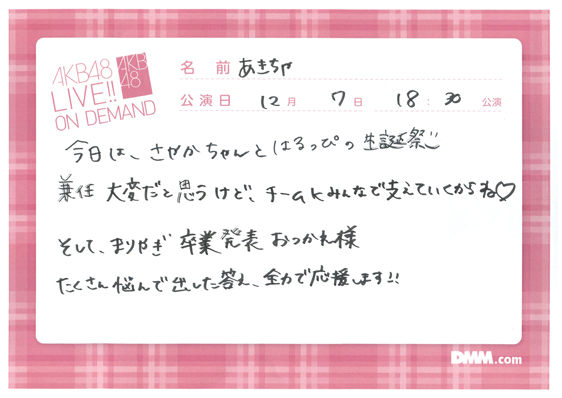 AKB48
LIVE!!
ON DEMAND
AKB
48
名 前 あきちゃ
公演日 12月 7日 18:30 公演
今日は、さやかちゃんとはるっぴの生誕祭
兼任 大変だと思うけど、チームKみんなで支えていくからね♡
そして、まりやぎ 卒業発表 おつかれ様
たくさん悩んで出した答え、全力で応援します!!
DMM.com